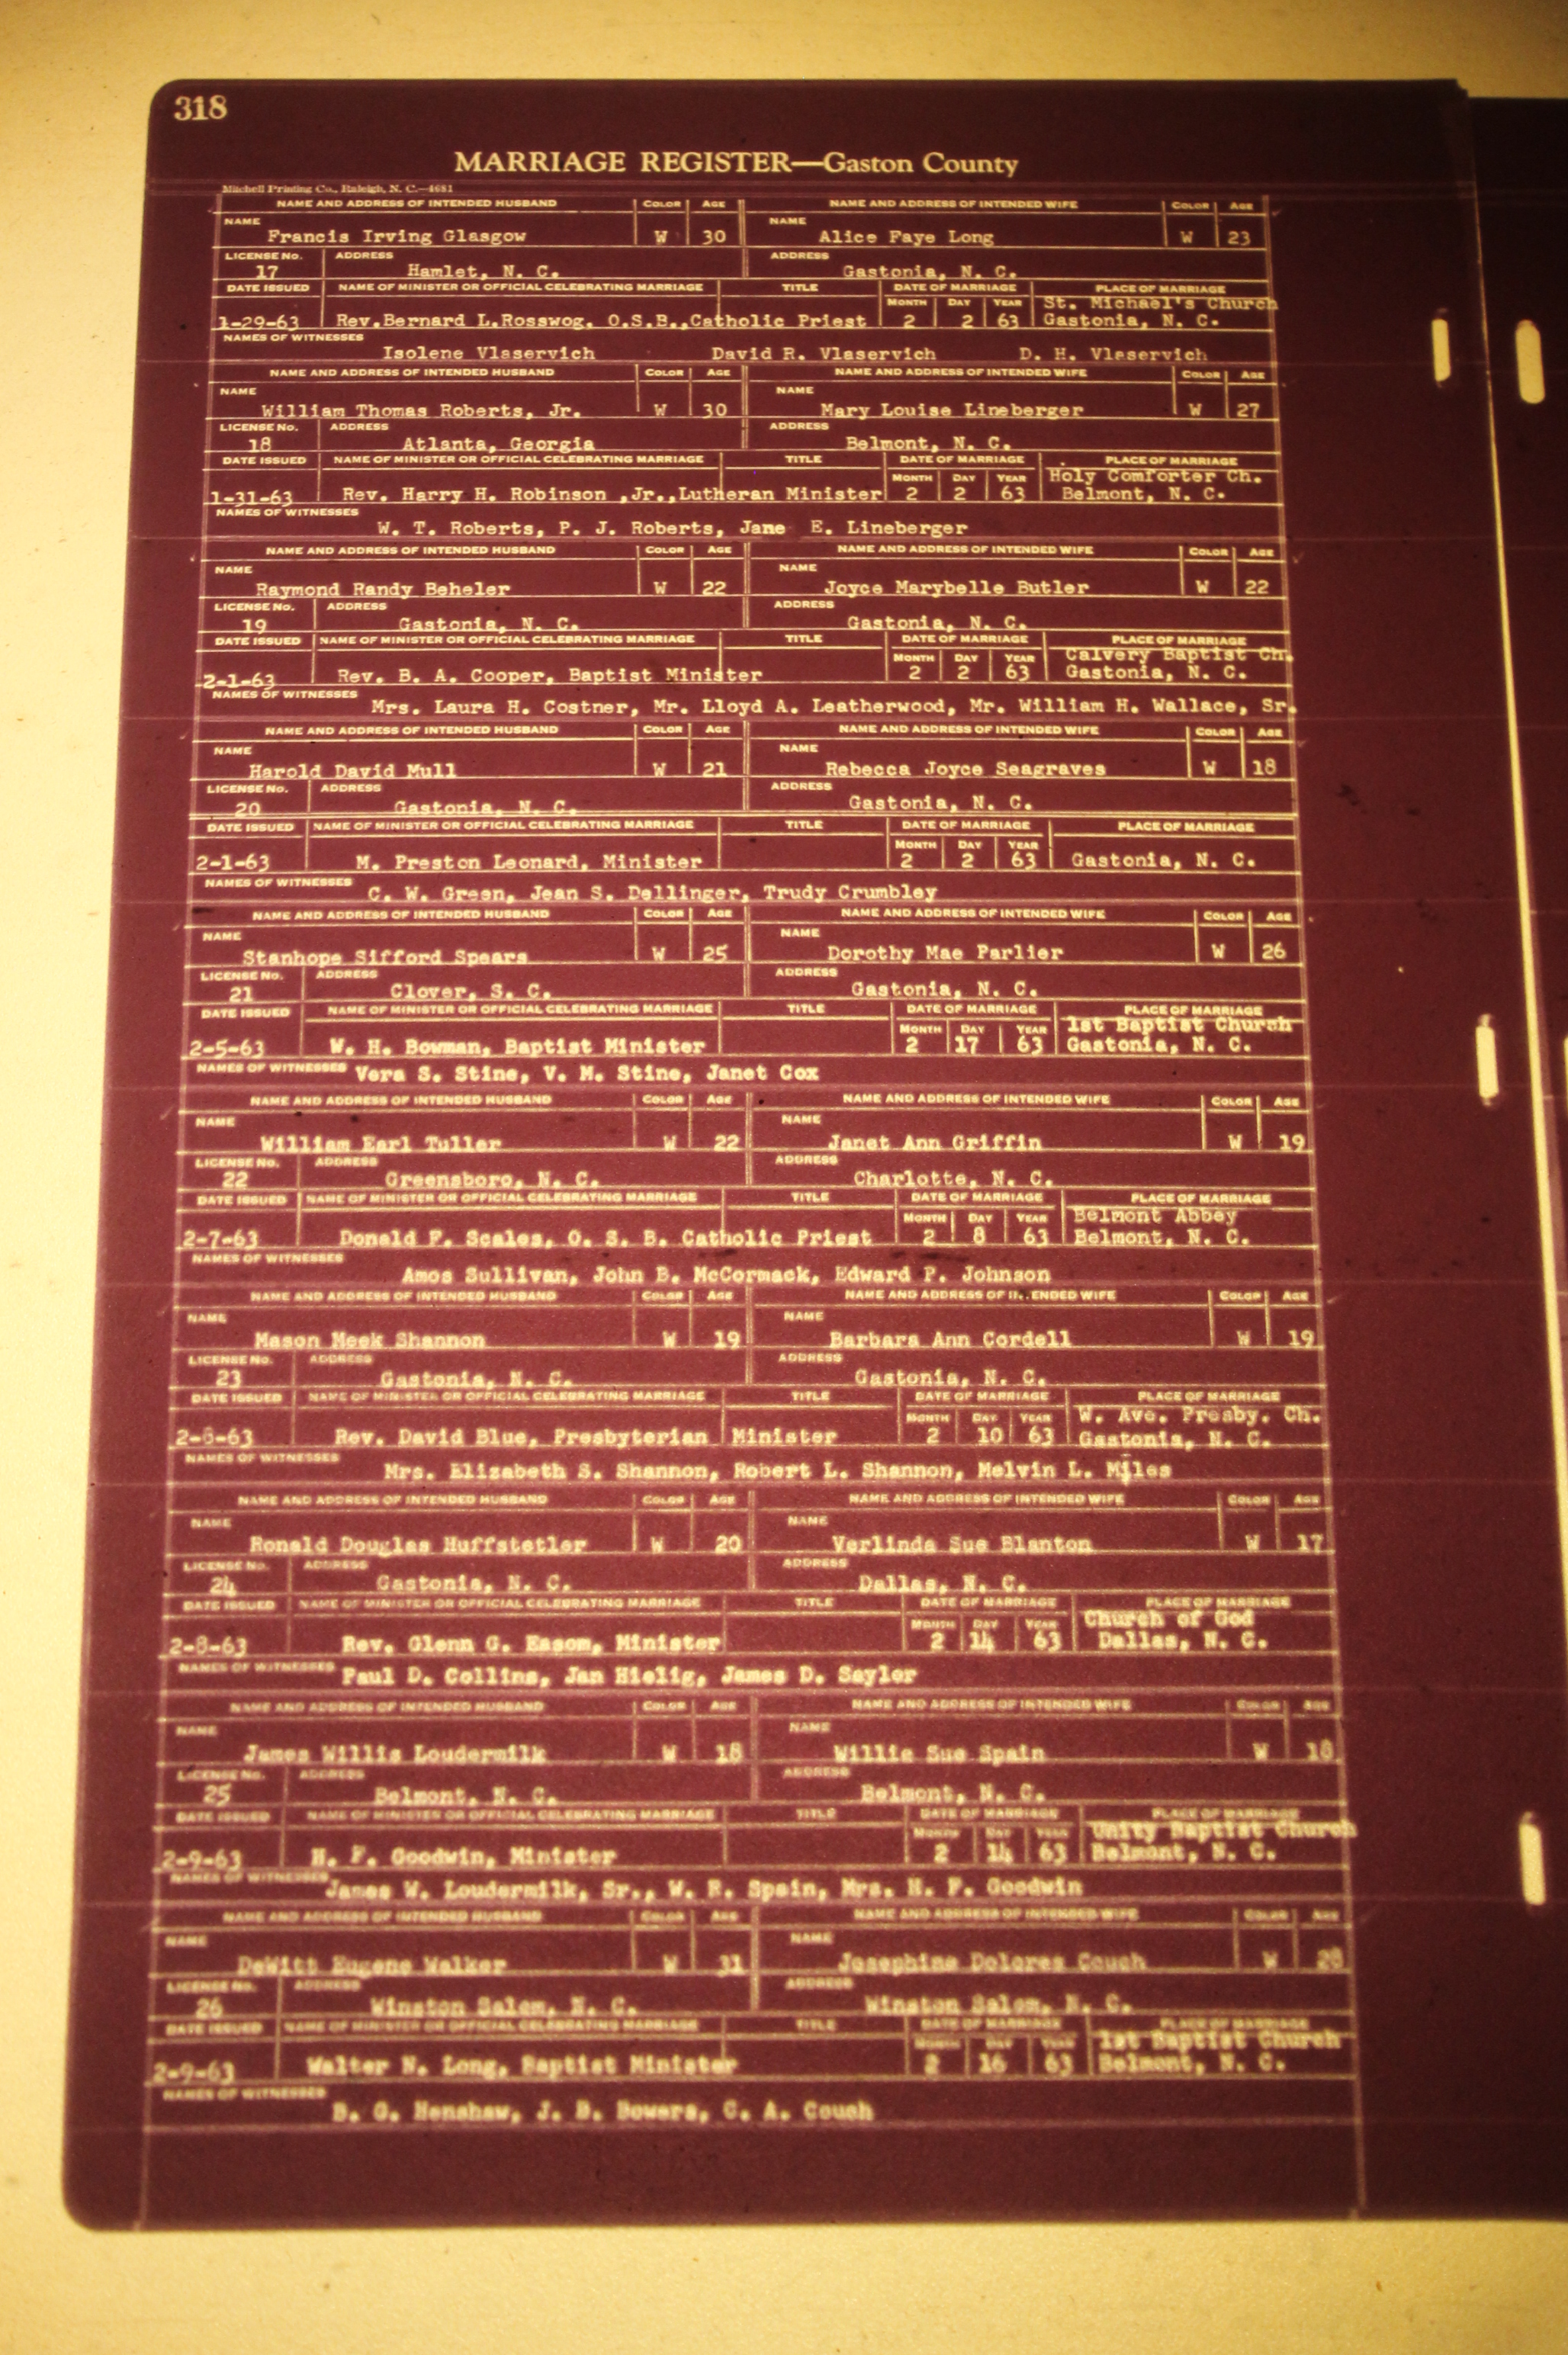 318
MARRIAGE REGISTER—Gaston County
Mitchell Printing Co., Raleigh, N. C.—4681
NAME AND ADDRESS OF INTENDED HUSBAND COLOR AGE NAME AND ADDRESS OF INTENDED WIFE COLOR AGE
NAME Francis Irving Glasgow W 30 NAME Alice Faye Long W 23
LICENSE No. 17 ADDRESS Hamlet, N. C. ADDRESS Gastonia, N. C.
DATE ISSUED NAME OF MINISTER OR OFFICIAL CELEBRATING MARRIAGE TITLE DATE OF MARRIAGE PLACE OF MARRIAGE
MONTH DAY YEAR St. Michael's Church
1-29-63 Rev.Bernard L.Rosswog, O.S.B.,Catholic Priest 2 2 63 Gastonia, N. C.
NAMES OF WITNESSES Isolene Vlaservich David R. Vlaservich D. H. Vlaservich
NAME AND ADDRESS OF INTENDED HUSBAND COLOR AGE NAME AND ADDRESS OF INTENDED WIFE COLOR AGE
NAME William Thomas Roberts, Jr. W 30 NAME Mary Louise Lineberger W 27
LICENSE No. 18 ADDRESS Atlanta, Georgia ADDRESS Belmont, N. C.
DATE ISSUED NAME OF MINISTER OR OFFICIAL CELEBRATING MARRIAGE TITLE DATE OF MARRIAGE PLACE OF MARRIAGE
MONTH DAY YEAR Holy Comforter Ch.
1-31-63 Rev. Harry H. Robinson ,Jr.,Lutheran Minister 2 2 63 Belmont, N. C.
NAMES OF WITNESSES W. T. Roberts, P. J. Roberts, Jane E. Lineberger
NAME AND ADDRESS OF INTENDED HUSBAND COLOR AGE NAME AND ADDRESS OF INTENDED WIFE COLOR AGE
NAME Raymond Randy Beheler W 22 NAME Joyce Marybelle Butler W 22
LICENSE No. 19 ADDRESS Gastonia, N. C. ADDRESS Gastonia, N. C.
DATE ISSUED NAME OF MINISTER OR OFFICIAL CELEBRATING MARRIAGE TITLE DATE OF MARRIAGE PLACE OF MARRIAGE
MONTH DAY YEAR Calvery Baptist Ch.
2-1-63 Rev. B. A. Cooper, Baptist Minister 2 2 63 Gastonia, N. C.
NAMES OF WITNESSES Mrs. Laura H. Costner, Mr. Lloyd A. Leatherwood, Mr. William H. Wallace, Sr.
NAME AND ADDRESS OF INTENDED HUSBAND COLOR AGE NAME AND ADDRESS OF INTENDED WIFE COLOR AGE
NAME Harold David Mull W 21 NAME Rebecca Joyce Seagraves W 18
LICENSE No. 20 ADDRESS Gastonia, N. C. ADDRESS Gastonia, N. C.
DATE ISSUED NAME OF MINISTER OR OFFICIAL CELEBRATING MARRIAGE TITLE DATE OF MARRIAGE PLACE OF MARRIAGE
MONTH DAY YEAR
2-1-63 M. Preston Leonard, Minister 2 2 63 Gastonia, N. C.
NAMES OF WITNESSES C. W. Green, Jean S. Dellinger, Trudy Crumbley
NAME AND ADDRESS OF INTENDED HUSBAND COLOR AGE NAME AND ADDRESS OF INTENDED WIFE COLOR AGE
NAME Stanhope Sifford Spears W 25 NAME Dorothy Mae Parlier W 26
LICENSE No. 21 ADDRESS Clover, S. C. ADDRESS Gastonia, N. C.
DATE ISSUED NAME OF MINISTER OR OFFICIAL CELEBRATING MARRIAGE TITLE DATE OF MARRIAGE PLACE OF MARRIAGE
MONTH DAY YEAR 1st Baptist Church
2-5-63 W. H. Bowman, Baptist Minister 2 17 63 Gastonia, N. C.
NAMES OF WITNESSES Vera S. Stine, V. M. Stine, Janet Cox
NAME AND ADDRESS OF INTENDED HUSBAND COLOR AGE NAME AND ADDRESS OF INTENDED WIFE COLOR AGE
NAME William Earl Tuller W 22 NAME Janet Ann Griffin W 19
LICENSE No. 22 ADDRESS Greensboro, N. C. ADDRESS Charlotte, N. C.
DATE ISSUED NAME OF MINISTER OR OFFICIAL CELEBRATING MARRIAGE TITLE DATE OF MARRIAGE PLACE OF MARRIAGE
MONTH DAY YEAR Belmont Abbey
2-7-63 Donald F. Scales, O. S. B. Catholic Priest 2 8 63 Belmont, N. C.
NAMES OF WITNESSES Amos Sullivan, John B. McCormack, Edward P. Johnson
NAME AND ADDRESS OF INTENDED HUSBAND COLOR AGE NAME AND ADDRESS OF INTENDED WIFE COLOR AGE
NAME Mason Meek Shannon W 19 NAME Barbara Ann Cordell W 19
LICENSE No. 23 ADDRESS Gastonia, N. C. ADDRESS Gastonia, N. C.
DATE ISSUED NAME OF MINISTER OR OFFICIAL CELEBRATING MARRIAGE TITLE DATE OF MARRIAGE PLACE OF MARRIAGE
MONTH DAY YEAR W. Ave. Presby. Ch.
Rev. David Blue, Presbyterian Minister 2 10 63 Gastonia, N. C.
NAMES OF WITNESSES Mrs. Elizabeth S. Shannon, Robert L. Shannon, Melvin L. Miles
NAME AND ADDRESS OF INTENDED HUSBAND COLOR AGE NAME AND ADDRESS OF INTENDED WIFE COLOR AGE
NAME Ronald Douglas Huffstetler W 20 NAME Verlinda Sue Blanton W 17
LICENSE No. 24 ADDRESS Gastonia, N. C. ADDRESS Dallas, N. C.
DATE ISSUED NAME OF MINISTER OR OFFICIAL CELEBRATING MARRIAGE TITLE DATE OF MARRIAGE PLACE OF MARRIAGE
MONTH DAY YEAR Church of God
2-8-63 Rev. Glenn G. Eason, Minister 2 14 63 Dallas, N. C.
NAMES OF WITNESSES Paul D. Collins, Jan Hielig, James D. Sayler
NAME AND ADDRESS OF INTENDED HUSBAND COLOR AGE NAME AND ADDRESS OF INTENDED WIFE COLOR AGE
NAME James Willis Loudermilk W 18 NAME Willie Sue Spain W 18
LICENSE No. 25 ADDRESS Belmont, N. C. ADDRESS Belmont, N. C.
DATE ISSUED NAME OF MINISTER OR OFFICIAL CELEBRATING MARRIAGE TITLE DATE OF MARRIAGE PLACE OF MARRIAGE
MONTH DAY YEAR Unity Baptist Church
2-9-63 H. F. Goodwin, Minister 2 14 63 Belmont, N. C.
NAMES OF WITNESSES James W. Loudermilk, Sr., W. R. Spain, Mrs. H. F. Goodwin
NAME AND ADDRESS OF INTENDED HUSBAND COLOR AGE NAME AND ADDRESS OF INTENDED WIFE COLOR AGE
NAME DeWitt Eugene Walker W 31 NAME Josephine Dolores Couch W 28
LICENSE No. 26 ADDRESS Winston Salem, N. C. ADDRESS Winston Salem, N. C.
DATE ISSUED NAME OF MINISTER OR OFFICIAL CELEBRATING MARRIAGE TITLE DATE OF MARRIAGE PLACE OF MARRIAGE
MONTH DAY YEAR 1st Baptist Church
2-9-63 Walter N. Long, Baptist Minister 2 16 63 Belmont, N. C.
NAMES OF WITNESSES B. G. Henshaw, J. B. Bowers, C. A. Couch